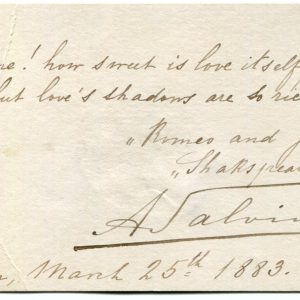 me! how sweet is love itself
but love's shadows are so ric
"Romeo and J
"Shakspear
A Salvin
March 25th 1883.